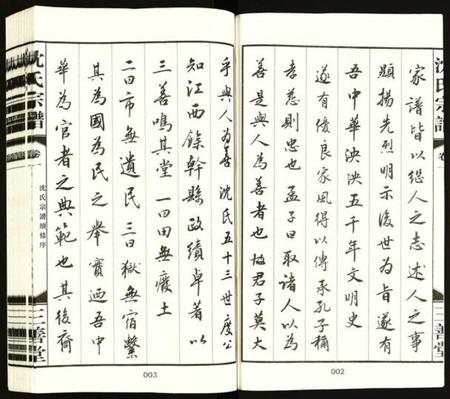 沈氏宗譜
卷一
家譜皆以繼人之志述人之事
顯揚先烈明示後世為旨遂有
吾中華泱泱五千年文明史
遂有優良家風得以傳承孔子稱
孝慈則忠也孟子曰取諸人以為
善是與人為善者也故君子莫大
002
乎與人為善沈氏五十三世度公
知江西餘幹縣政績卓著以
三善鳴其堂一曰田無廢土
二曰市無遺民三曰獄無宿繫
其為國為民之舉實迺吾中
華為官者之典範也其後裔
003
沈氏宗譜
卷一
沈氏宗譜續修序
三善堂